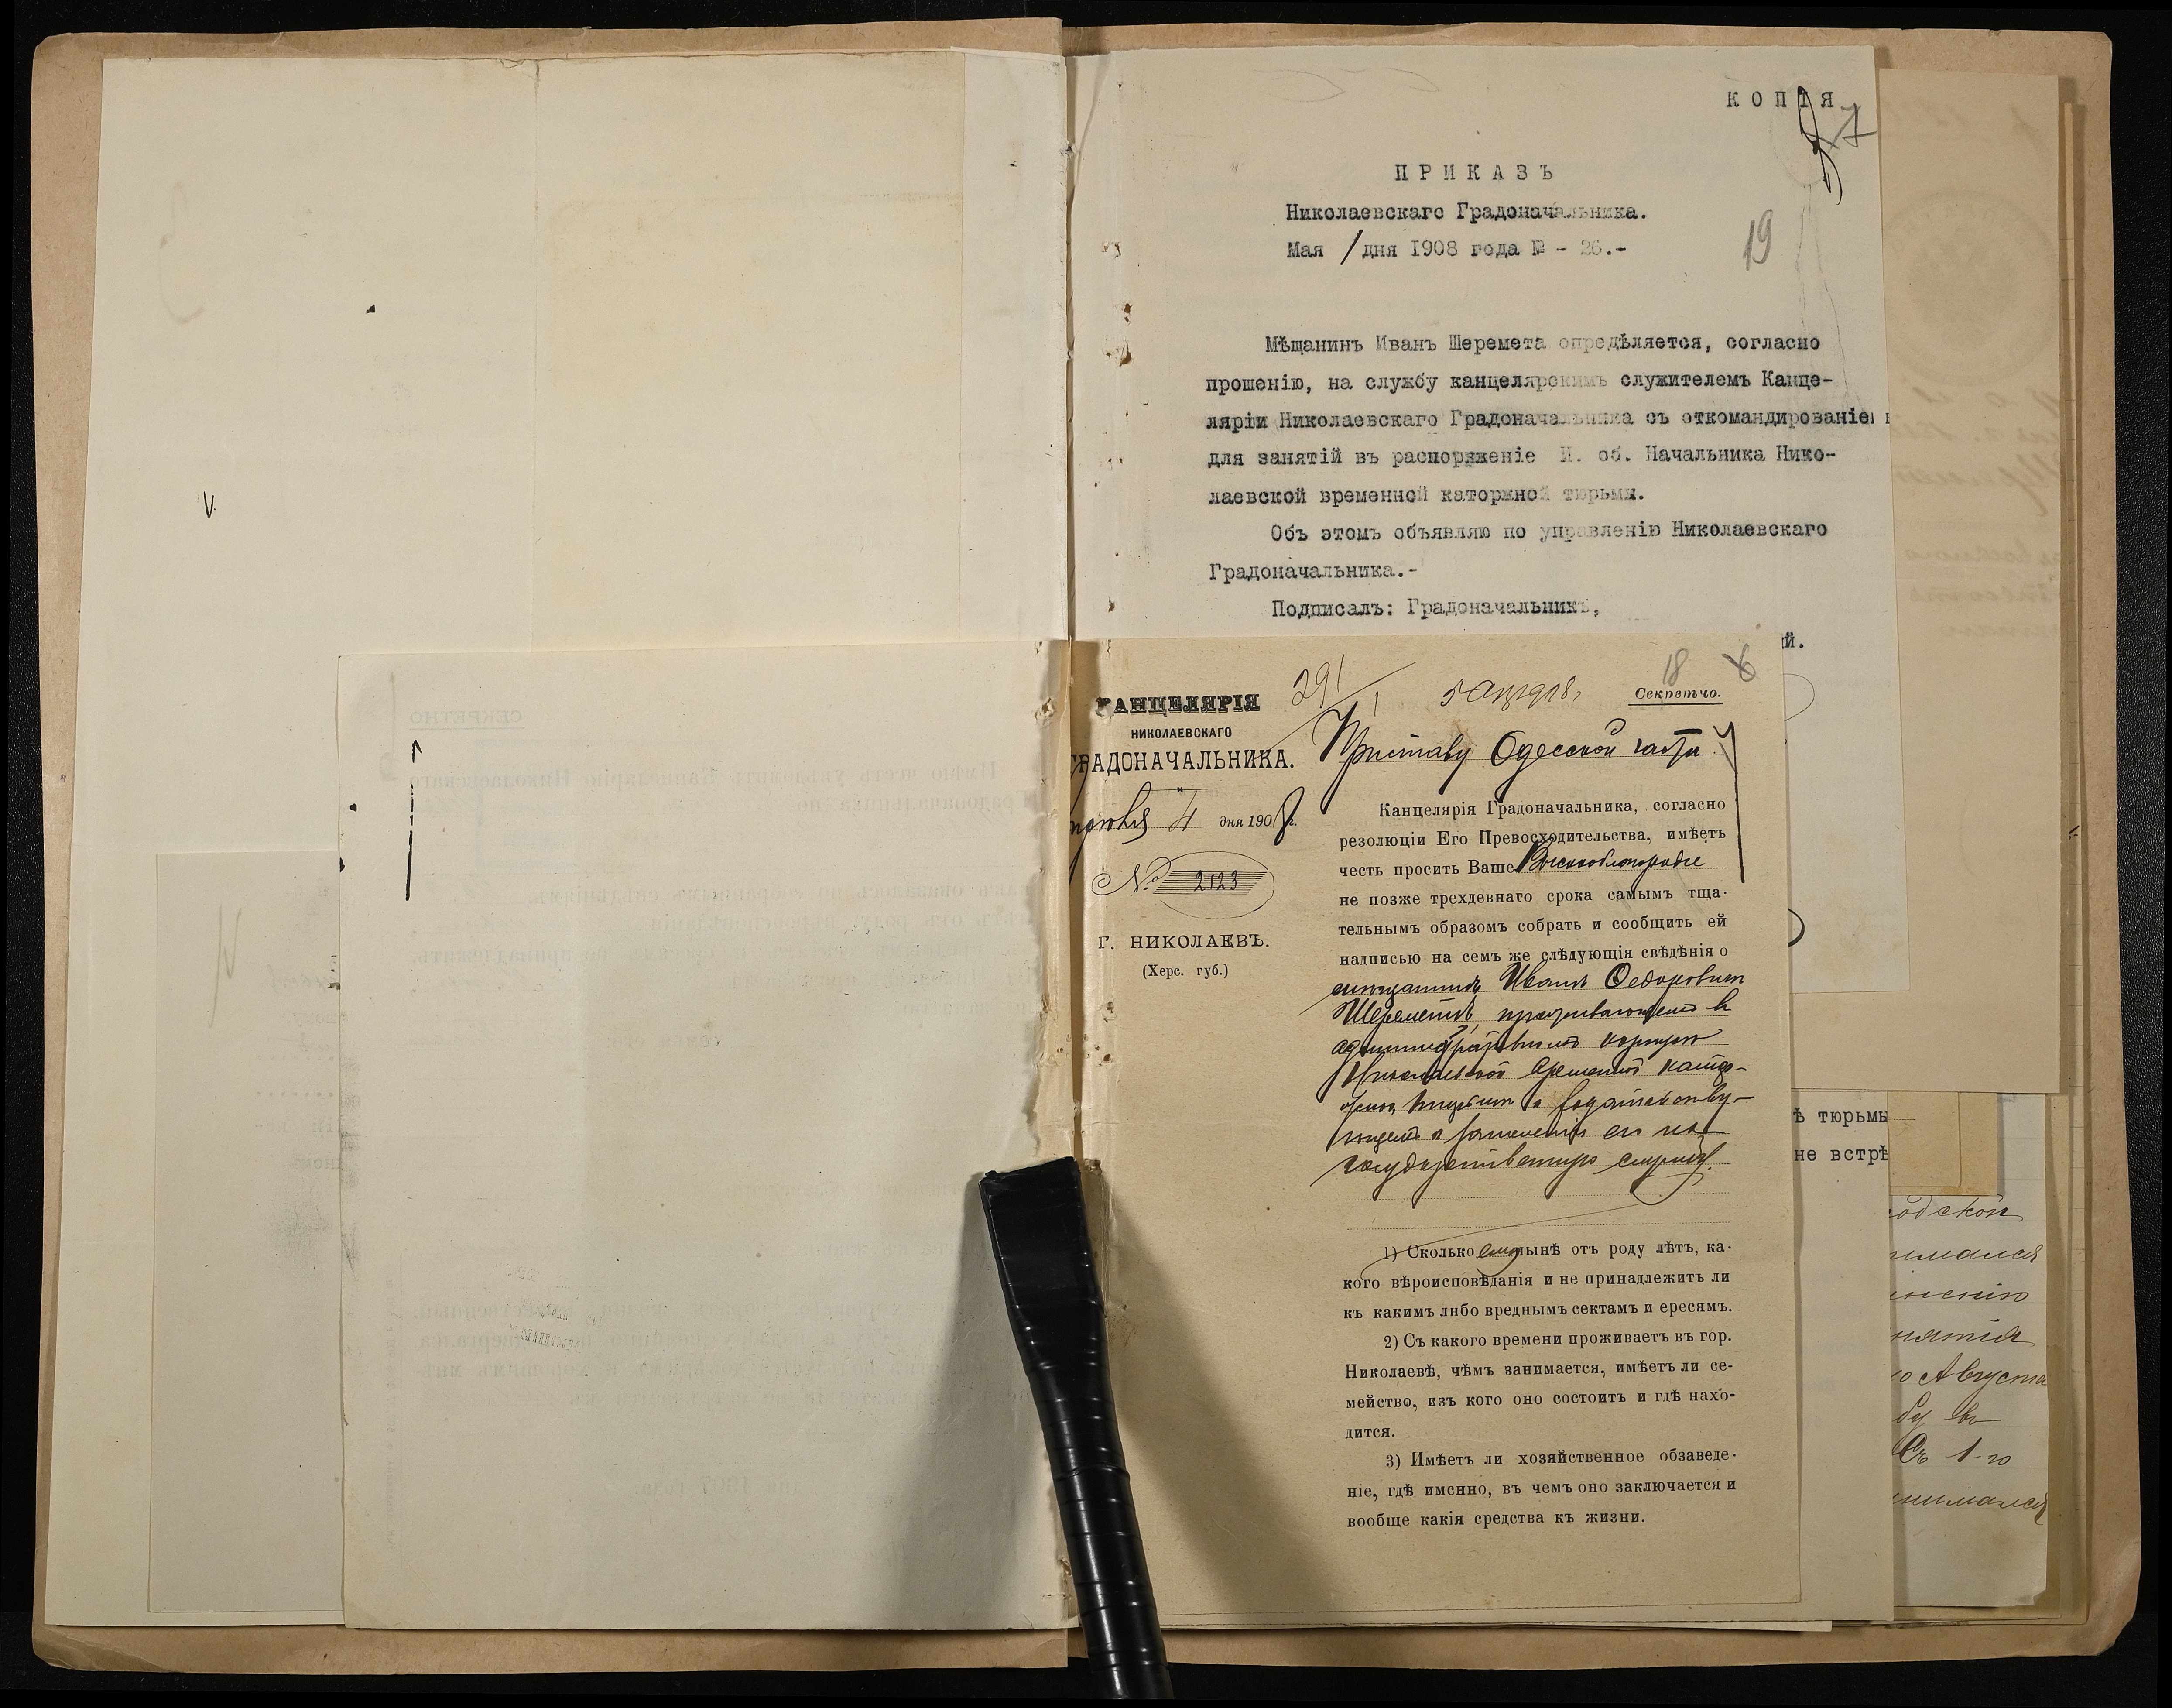 КОПІЯ
ПРИКАЗЪ
Николаевскаго Градоначальника.
Мая 1 дня 1908 года № - 26.-
19
Мѣщанинъ Иванъ Шеремета опредѣляется, согласно
прошенію, на службу канцелярскимъ служителемъ Канце-
ляріи Николаевскаго Градоначальника съ откомандированіе
для занятій въ распоряженіе И. об. Начальника Нико-
лаевской временной каторжной тюрьмы.
Объ этомъ объявляю по управленію Николаевскаго
Градоначальника.-
Подписалъ: Градоначальникъ,
й.
18
291
Секретно.
КАНЦЕЛЯРІЯ
НИКОЛАЕВСКАГО
ГРАДОНАЧАЛЬНИКА.
4 дня 1908 г.
№ 2123
Г. НИКОЛАЕВЪ.
(Херс. губ.)
Приставу Одесской части
Канцелярія Градоначальника, согласно
резолюціи Его Превосходительства, имѣетъ
честь просить Ваше Высокоблагородіе
не позже трехдевнаго срока самымъ тща-
тельнымъ образомъ собрать и сообщить ей
надписью на семъ же слѣдующія свѣдѣнія о
мѣщанинѣ Иванѣ Федоровичѣ
Шереметѣ, проживающемъ въ
административномъ корпусѣ
Николаевской временной катор-
жной тюрьмы и ходатайству-
ющемъ о зачисленіи его на
государственную службу.
1) Сколько ему нынѣ отъ роду лѣтъ, ка-
кого вѣроисповѣданія и не принадлежитъ ли
къ какимъ либо вреднымъ сектамъ и ересямъ.
2) Съ какого времени проживаетъ въ гор.
Николаевѣ, чѣмъ занимается, имѣетъ ли се-
мейство, изъ кого оно состоитъ и гдѣ нахо-
дится.
3) Имѣетъ ли хозяйственное обзаведе-
ніе, гдѣ именно, въ чемъ оно заключается и
вообще какія средства къ жизни.
ѣ тюрьмы
не встрѣ
одской
имался
нятія
го Августа
бу въ
Съ 1-го
нимался